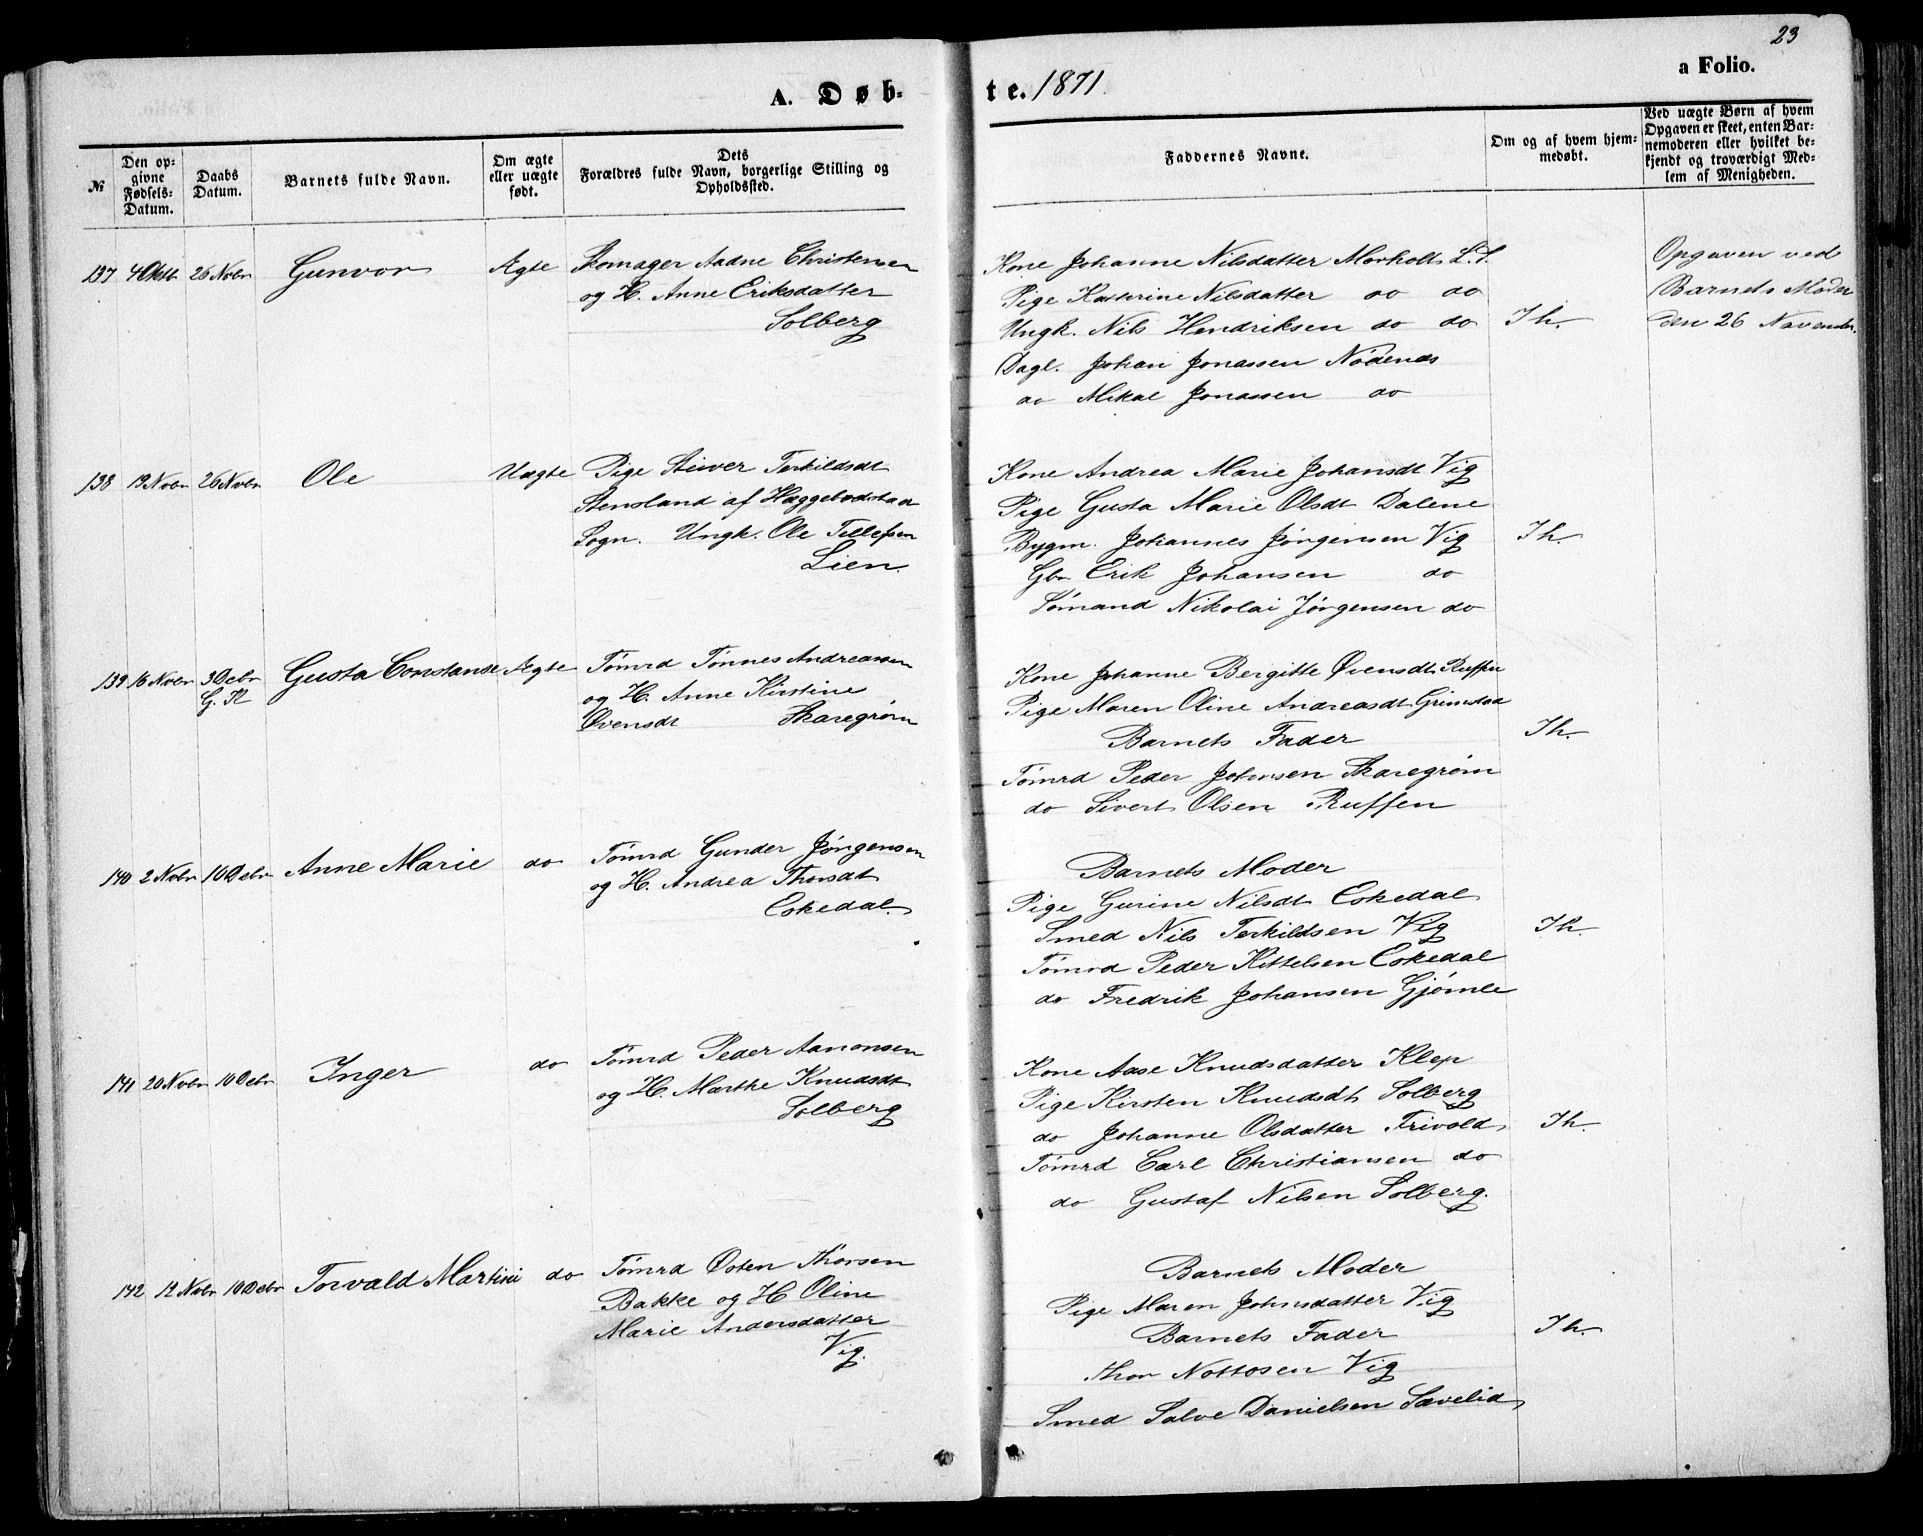 23
A. Døb-
te. 1871.
a Folio.
№
Den op-
givne
Fødsels-
Datum.
Daabs
Datum.
Barnets fulde Navn.
Om ægte
eller uægte
født.
Dets
Forældres fulde Navn, borgerlige Stilling og
Opholdssted.
Faddernes Navne.
Om og af hvem hjem-
medøbt.
Ved uægte Børn af hvem
Opgaven er skeet, enten Bar-
nemoderen eller hvilket be-
kjendt og troværdigt Med-
lem af Menigheden.
137 4 Oktb 26 Novbr Gunvor Ægte Skomager Aadne Christensen
og H. Anne Eriksdatter
Solberg
Kone Johanne Nilsdatter Morholt L. S.
Pige Katterine Nilsdatter do do
Ungk. Nils Hendriksen do do
Dagl. Johan Jonassen Nødenes
do Mikal Jonassen do
Ih.
Opgaven ved
Barnets Moder
den 26 November.
138 19 Novbr 26 Novbr Ole Uægte Pige Siver Terkildsdt
Stensland af Haggebodstad
Sogn. Ungk. Ole Tellefsen
Lien.
Kone Andrea Marie Johansdt Vig
Pige Gusta Marie Olsdt Dalene
Bygm. Johannes Jørgensen Vig
Gbr Erik Johansen do
Sømand Nikolai Jørgensen do
Ih.
139 16 Novbr 3 Debr
G. K
Gusta Constanse Ægte Tømrd Tønnes Andreassen
og H. Anne Kirstine
Øvensdt Skaregrøm
Kone Johanne Bergitte Øvensdt Ruffen
Pige Maren Oline Andreasdt Grimstad
Barnets Fader
Tømrd Peder Johnsen Skaregrøm
do Sivert Olsen Ruffen
Ih.
140 2 Novbr 10 Debr Anne Marie do Tømrd Gunder Jørgensen
og H. Andrea Thorsdt
Eskedal
Barnets Moder
Pige Gurine Nilsdt Eskedal
Smed Nils Terkildsen Vig
Tømrd Peder Kittelsen Eskedal
do Fredrik Johansen Gjømle
Ih.
141 20 Novbr 10 Debr Inger do Tømrd Peder Aanonsen
og H. Marthe Knudsdt
Solberg
Kone Aase Knudsdatter Klep
Pige Kirsten Knudsdt Solberg
do Johanne Olsdatter Frivold
Tømrd Carl Christiansen do
do Gustaf Nilsen Solberg.
Ih.
142 12 Novbr 10 Debr Torvald Martini do Tømrd Østen Thorsen
Bakke og H Oline
Marie Andersdatter
Vig.
Barnets Moder
Pige Maren Johnsdatter Vig
Barnets Fader
Thor Nottosen Vig
Smed Salve Danielsen Sævelid
Ih.